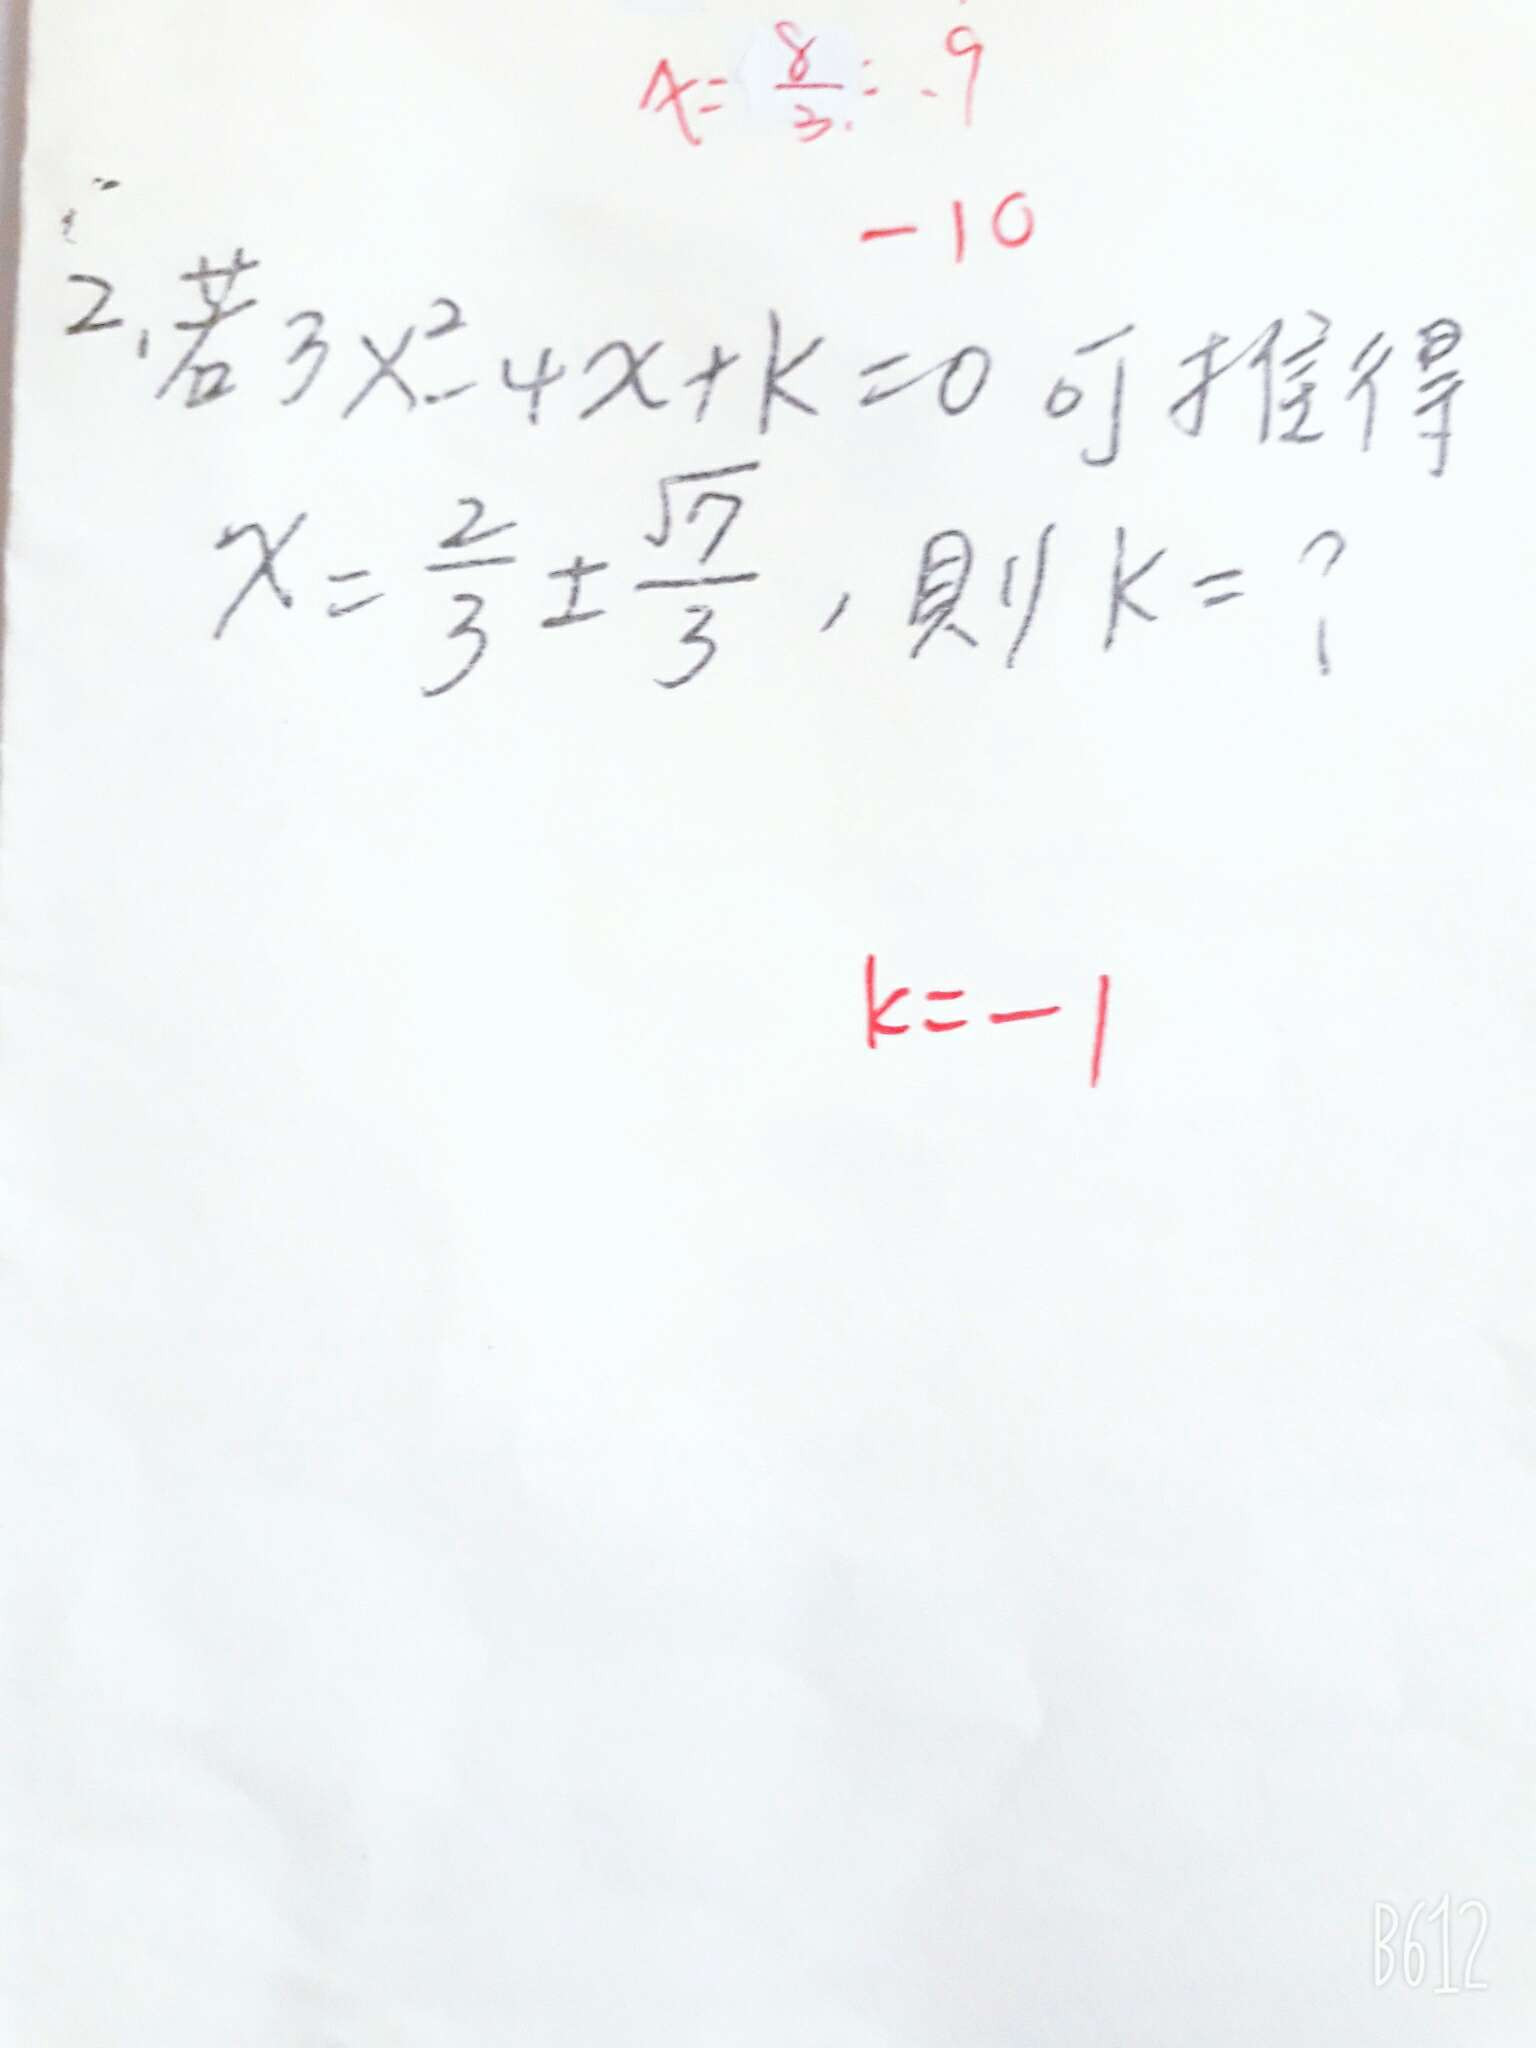 x = 8/3 = -9
-10
2. 若 3x² - 4x + k = 0 可推得
x = 2/3 ± √7/3 , 則 k = ?
k = -1
B612